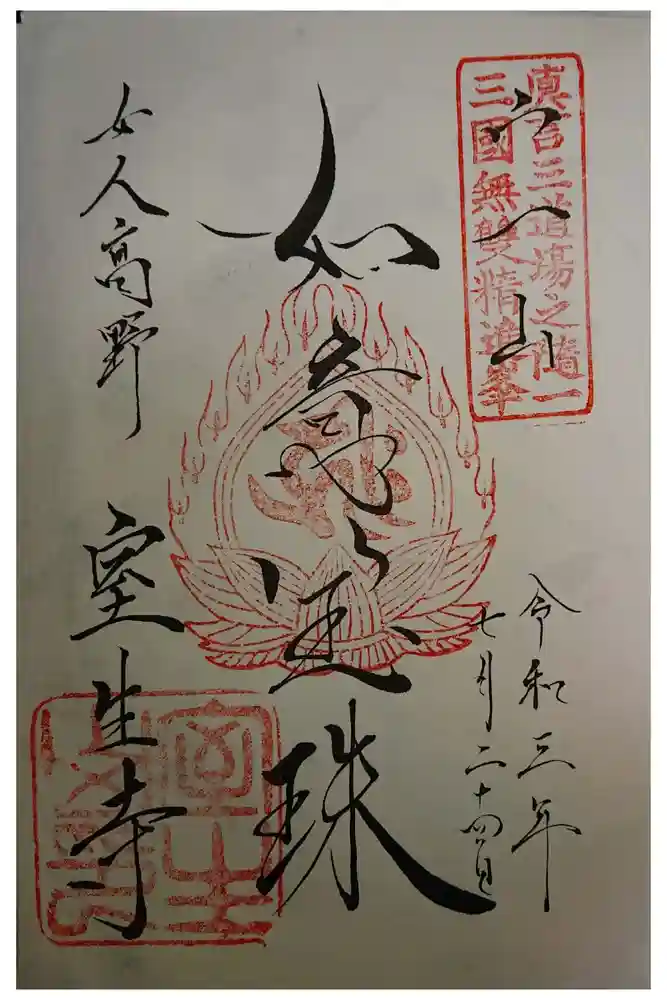 眞言三道場之隨一
三國無雙精進峯
宀一山
令和三年
七月二十四日
如意宝珠
女人高野 室生寺